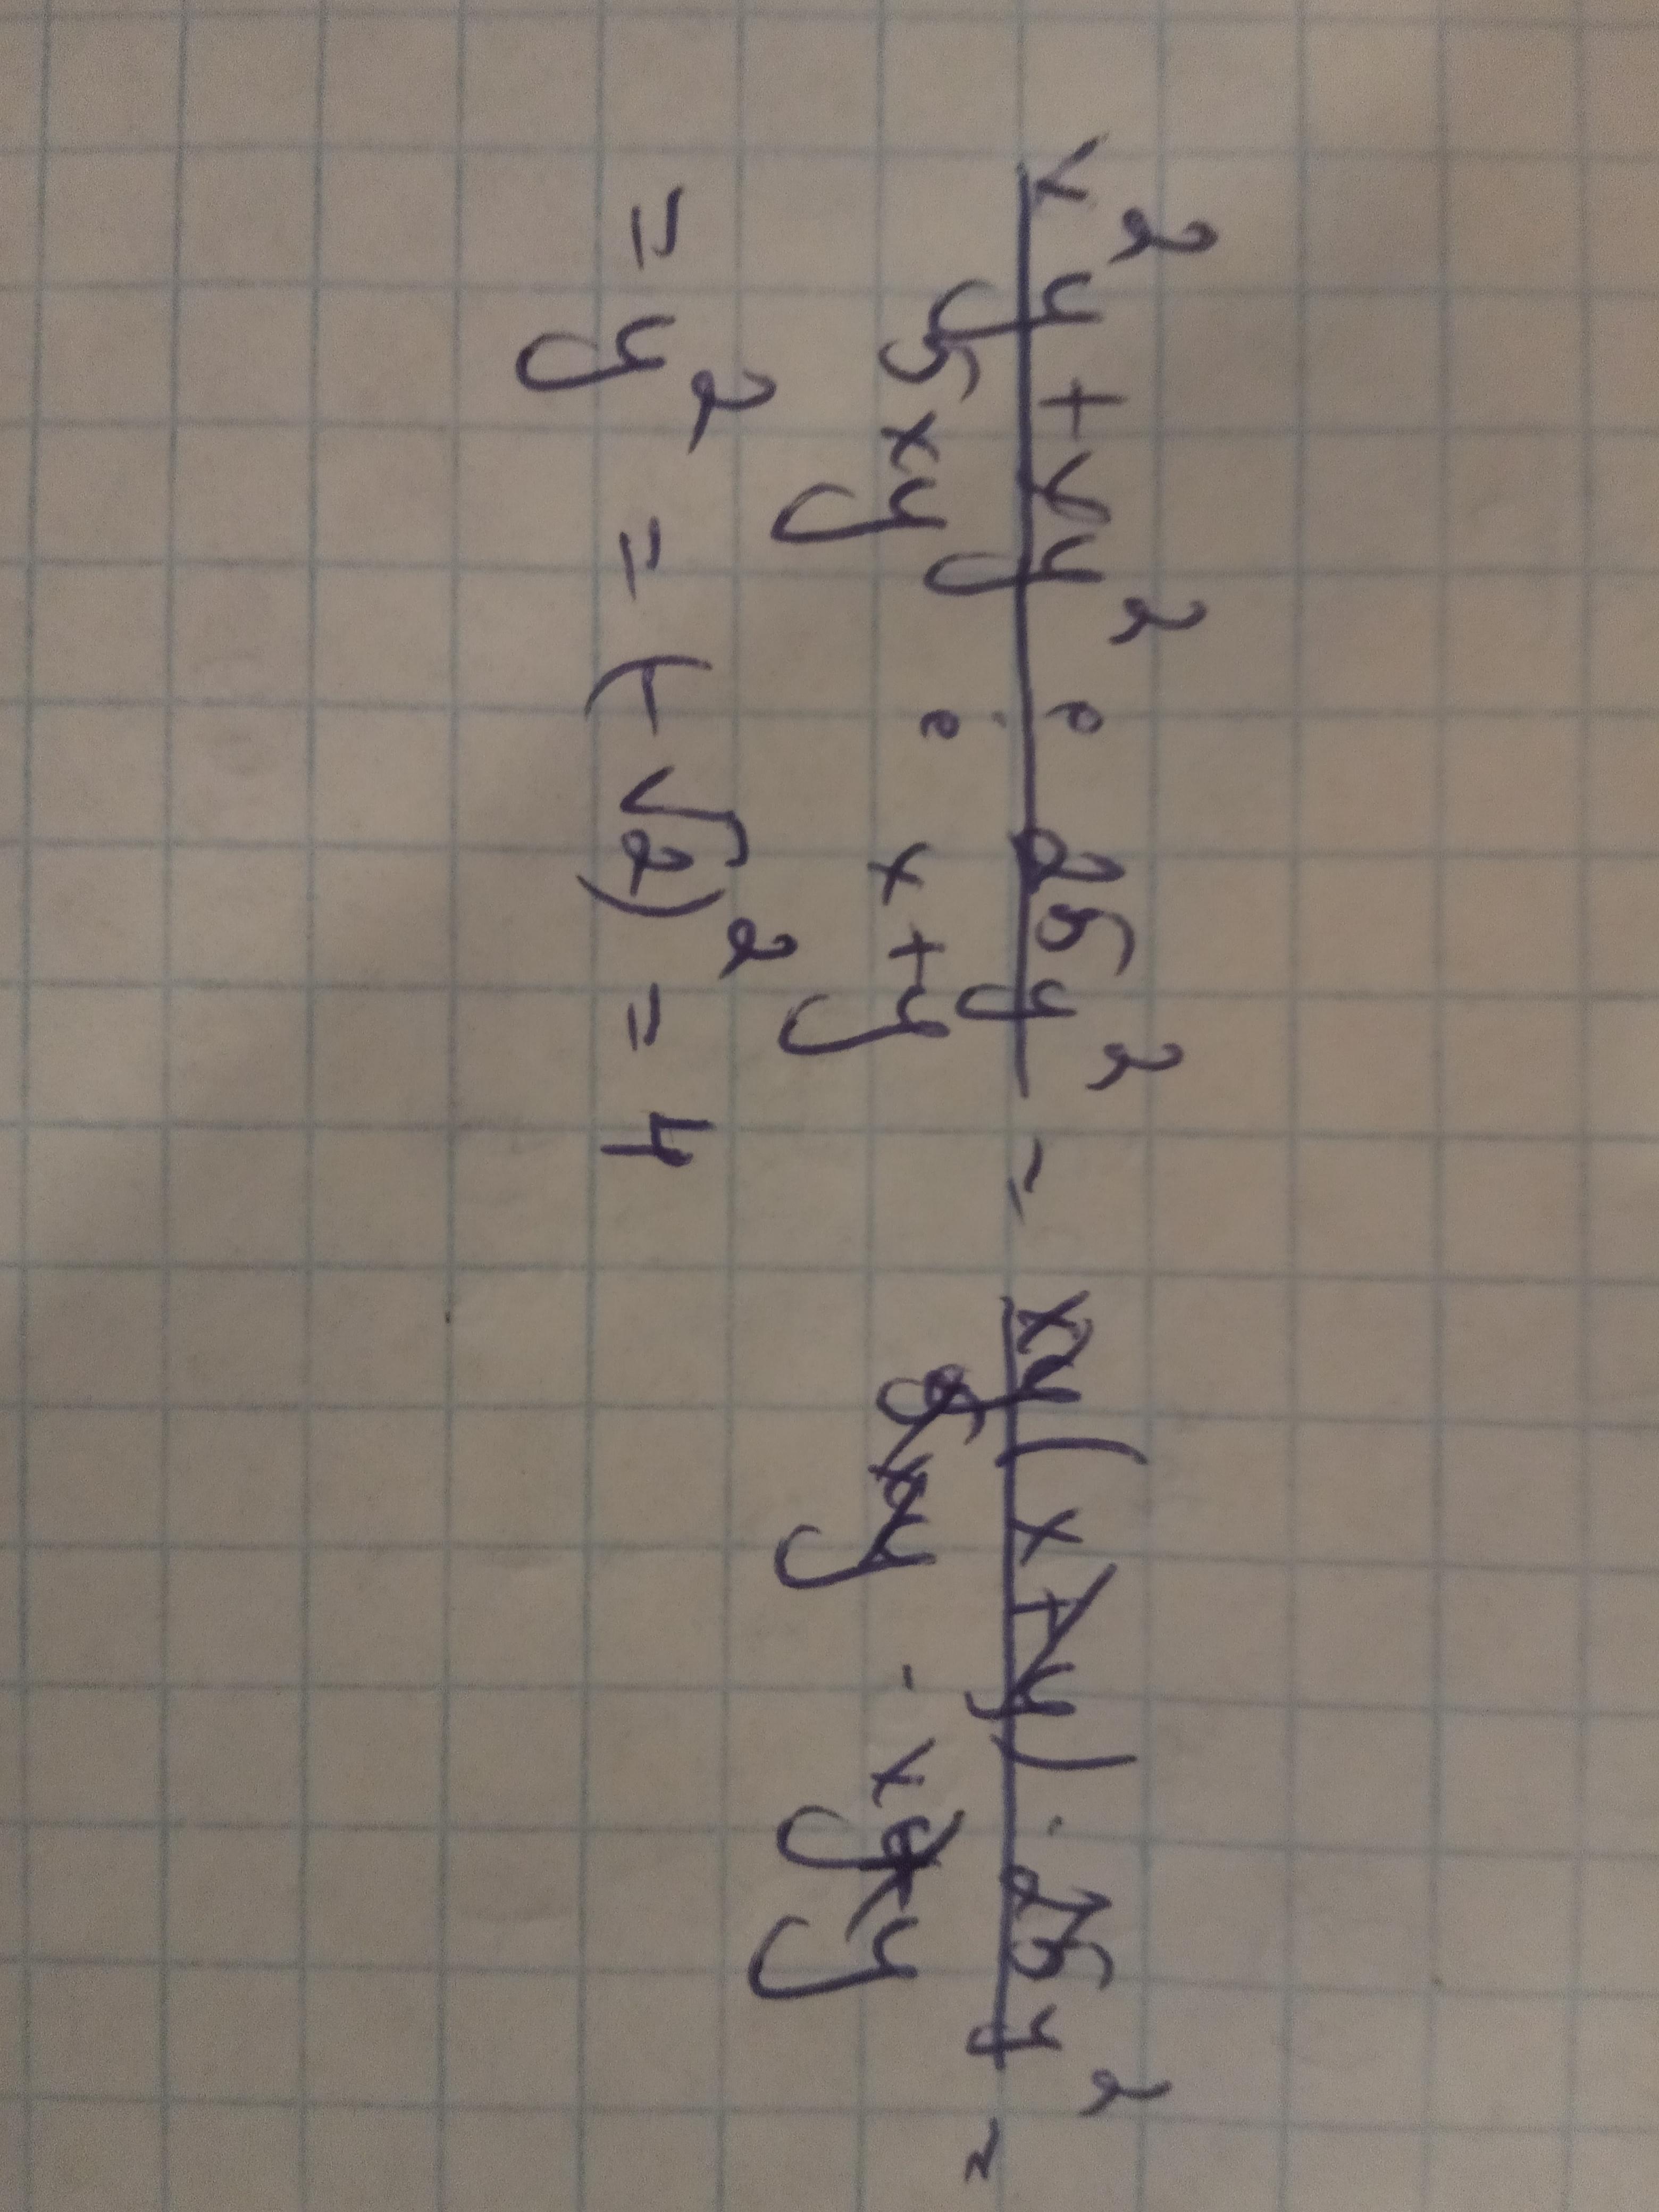 x²y + xy² / 5xy : 25y² / x + y = xy(x+y) · 25y² / 5xy · x+y =
= y² = (-√2)² = 4